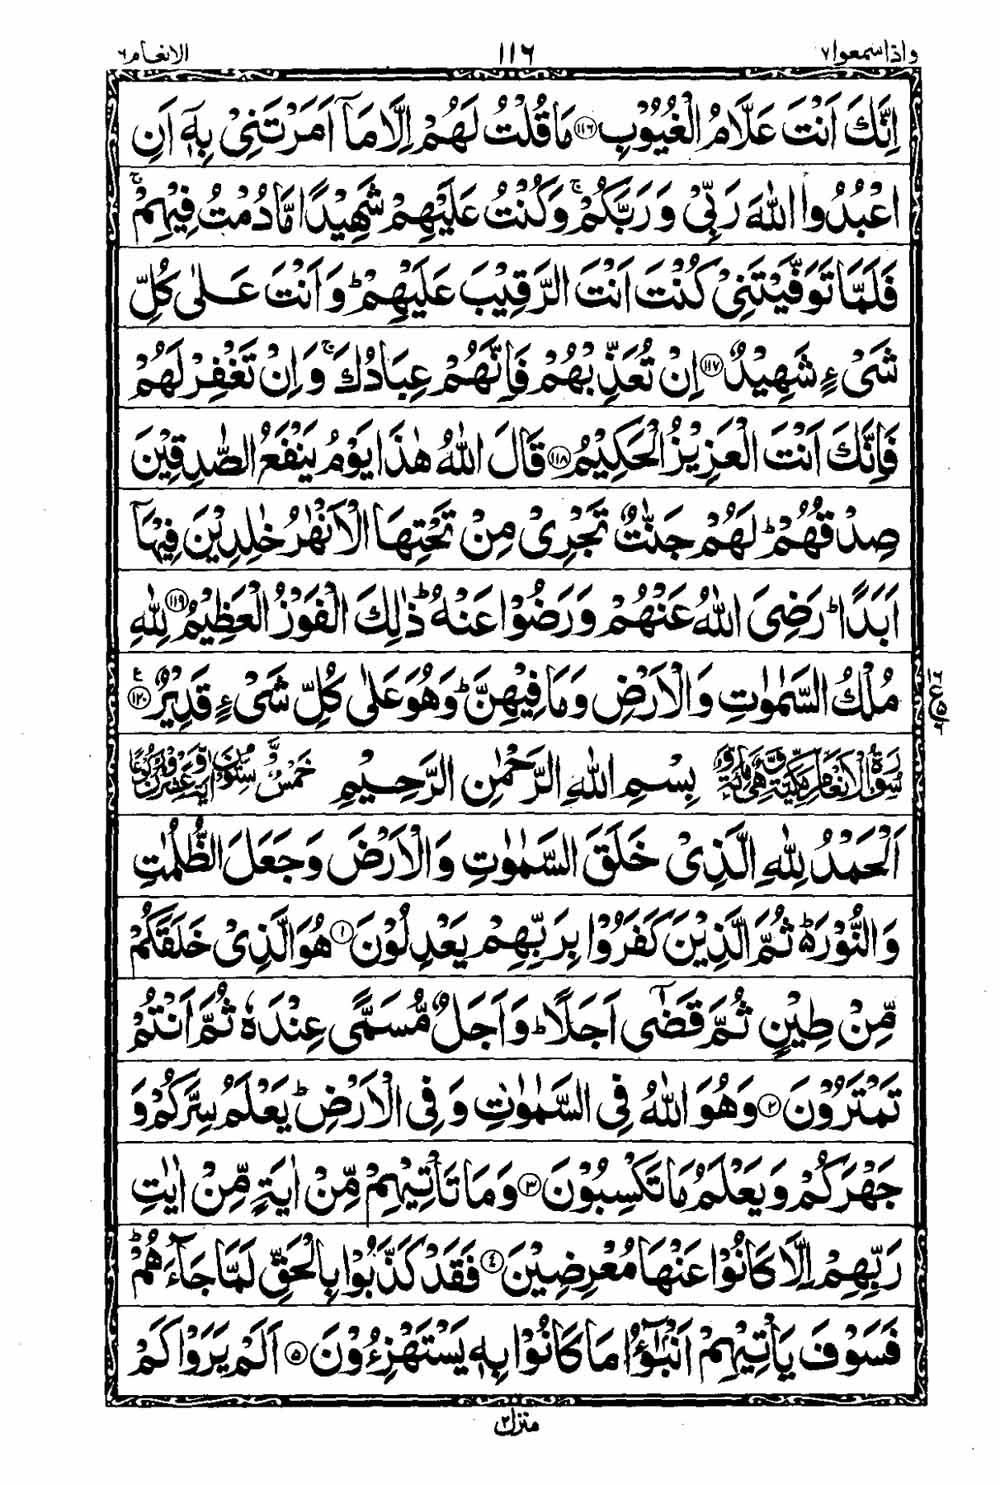 واذا سمعوا ٧ ١١٦ الانعام ٦
اِنَّكَ اَنْتَ عَلَّامُ الْغُيُوْبِ ﴿١١٦﴾ مَا قُلْتُ لَهُمْ اِلَّا مَاۤ اَمَرْتَنِىْ بِهٖۤ اَنِ
اعْبُدُوا اللّٰهَ رَبِّىْ وَرَبَّكُمْ ۚ وَكُنْتُ عَلَيْهِمْ شَهِيْدًا مَّا دُمْتُ فِيْهِمْ ۚ
فَلَمَّا تَوَفَّيْتَنِىْ كُنْتَ اَنْتَ الرَّقِيْبَ عَلَيْهِمْ ؕ وَاَنْتَ عَلٰى كُلِّ
شَىْءٍ شَهِيْدٌ ﴿١١٧﴾ اِنْ تُعَذِّبْهُمْ فَاِنَّهُمْ عِبَادُكَ ۚ وَاِنْ تَغْفِرْ لَهُمْ
فَاِنَّكَ اَنْتَ الْعَزِيْزُ الْحَكِيْمُ ﴿١١٨﴾ قَالَ اللّٰهُ هٰذَا يَوْمُ يَنْفَعُ الصّٰدِقِيْنَ
صِدْقُهُمْ ؕ لَهُمْ جَنّٰتٌ تَجْرِىْ مِنْ تَحْتِهَا الْاَنْهٰرُ خٰلِدِيْنَ فِيْهَاۤ
اَبَدًا ؕ رَضِىَ اللّٰهُ عَنْهُمْ وَرَضُوْا عَنْهُ ؕ ذٰلِكَ الْفَوْزُ الْعَظِيْمُ ﴿١١٩﴾ لِلّٰهِ
مُلْكُ السَّمٰوٰتِ وَالْاَرْضِ وَمَا فِيْهِنَّ ؕ وَهُوَ عَلٰى كُلِّ شَىْءٍ قَدِيْرٌ ﴿١٢٠﴾ ع
سُوْرَةُ الْاَنْعَامِ مَكِّيَّةٌ وَّهِىَ مِائَةٌ وَّ بِسْمِ اللّٰهِ الرَّحْمٰنِ الرَّحِيْمِ خَمْسٌ وَّسِتُّوْنَ اٰيَةً وَّعِشْرُوْنَ رُكُوْعًا
اَلْحَمْدُ لِلّٰهِ الَّذِىْ خَلَقَ السَّمٰوٰتِ وَالْاَرْضَ وَجَعَلَ الظُّلُمٰتِ
وَالنُّوْرَ ؕ ثُمَّ الَّذِيْنَ كَفَرُوْا بِرَبِّهِمْ يَعْدِلُوْنَ ﴿١﴾ هُوَ الَّذِىْ خَلَقَكُمْ
مِّنْ طِيْنٍ ثُمَّ قَضٰۤى اَجَلًا ؕ وَاَجَلٌ مُّسَمًّى عِنْدَهٗ ثُمَّ اَنْتُمْ
تَمْتَرُوْنَ ﴿٢﴾ وَهُوَ اللّٰهُ فِى السَّمٰوٰتِ وَفِى الْاَرْضِ ؕ يَعْلَمُ سِرَّكُمْ وَ
جَهْرَكُمْ وَيَعْلَمُ مَا تَكْسِبُوْنَ ﴿٣﴾ وَمَا تَاْتِيْهِمْ مِّنْ اٰيَةٍ مِّنْ اٰيٰتِ
رَبِّهِمْ اِلَّا كَانُوْا عَنْهَا مُعْرِضِيْنَ ﴿٤﴾ فَقَدْ كَذَّبُوْا بِالْحَقِّ لَمَّا جَآءَهُمْ ؕ
فَسَوْفَ يَاْتِيْهِمْ اَنْۢبٰٓؤُا مَا كَانُوْا بِهٖ يَسْتَهْزِءُوْنَ ﴿٥﴾ اَلَمْ يَرَوْا كَمْ
منزل ٢